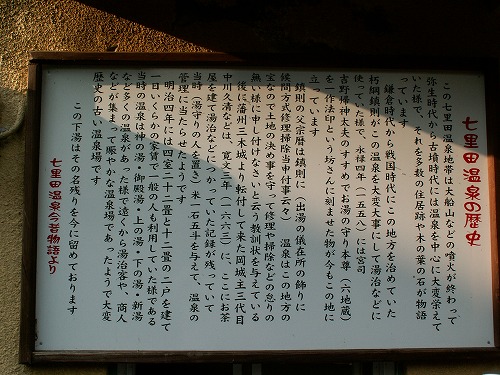 七里田温泉の歴史
この七里田温泉地帯は大船山などの噴火が終わって
弥生時代から古墳時代には温泉を中心に大変栄えて
いた様で、それを多数の住居跡や木の葉の石が物語
っています
鎌倉時代から戦国時代にこの地方を治めていた
朽網鎮則がこの温泉を大変大事にして湯治などに
使っていた様で、永禄四年(一五五八)には宮司
吉野掃神太夫のすすめでお湯の守り本尊(六地蔵)
を一作法印という坊さんに刻ませた物が今もこの地に
立っています
鎮則の父宗暦は鎮則に(出湯の儀在所の飾りに
候間方式修理掃除当申付事云々) 温泉はこの地方の
宝なので土地の決め事を守って修理や掃除などの怠りの
無い様に申し付けなさいと云う教訓状を与えている
後に播州三木城より転付して来た岡城主三代目
中川久清などは、寛文三年(一六六三)に、ここにお茶
屋を建て湯治などにつかっていた記録が残っていて
当時(湯守り)の人を置き)米一石五斗を与えて、温泉の
管理に当たらせたようです
明治四年には四室二十二畳と十二畳の二戸を建て
一日いくらかの家賃で一般の人も利用していた様である
当時の温泉は神の湯・御殿湯・上の湯・下の湯・新湯
など多くの温泉があった様で遠くから湯治客や、商人
などが集まって賑やかな温泉場であったようで大変
歴史の古い温泉場です
この下湯はその名残りを今に留めております
七里田温泉今昔物語より